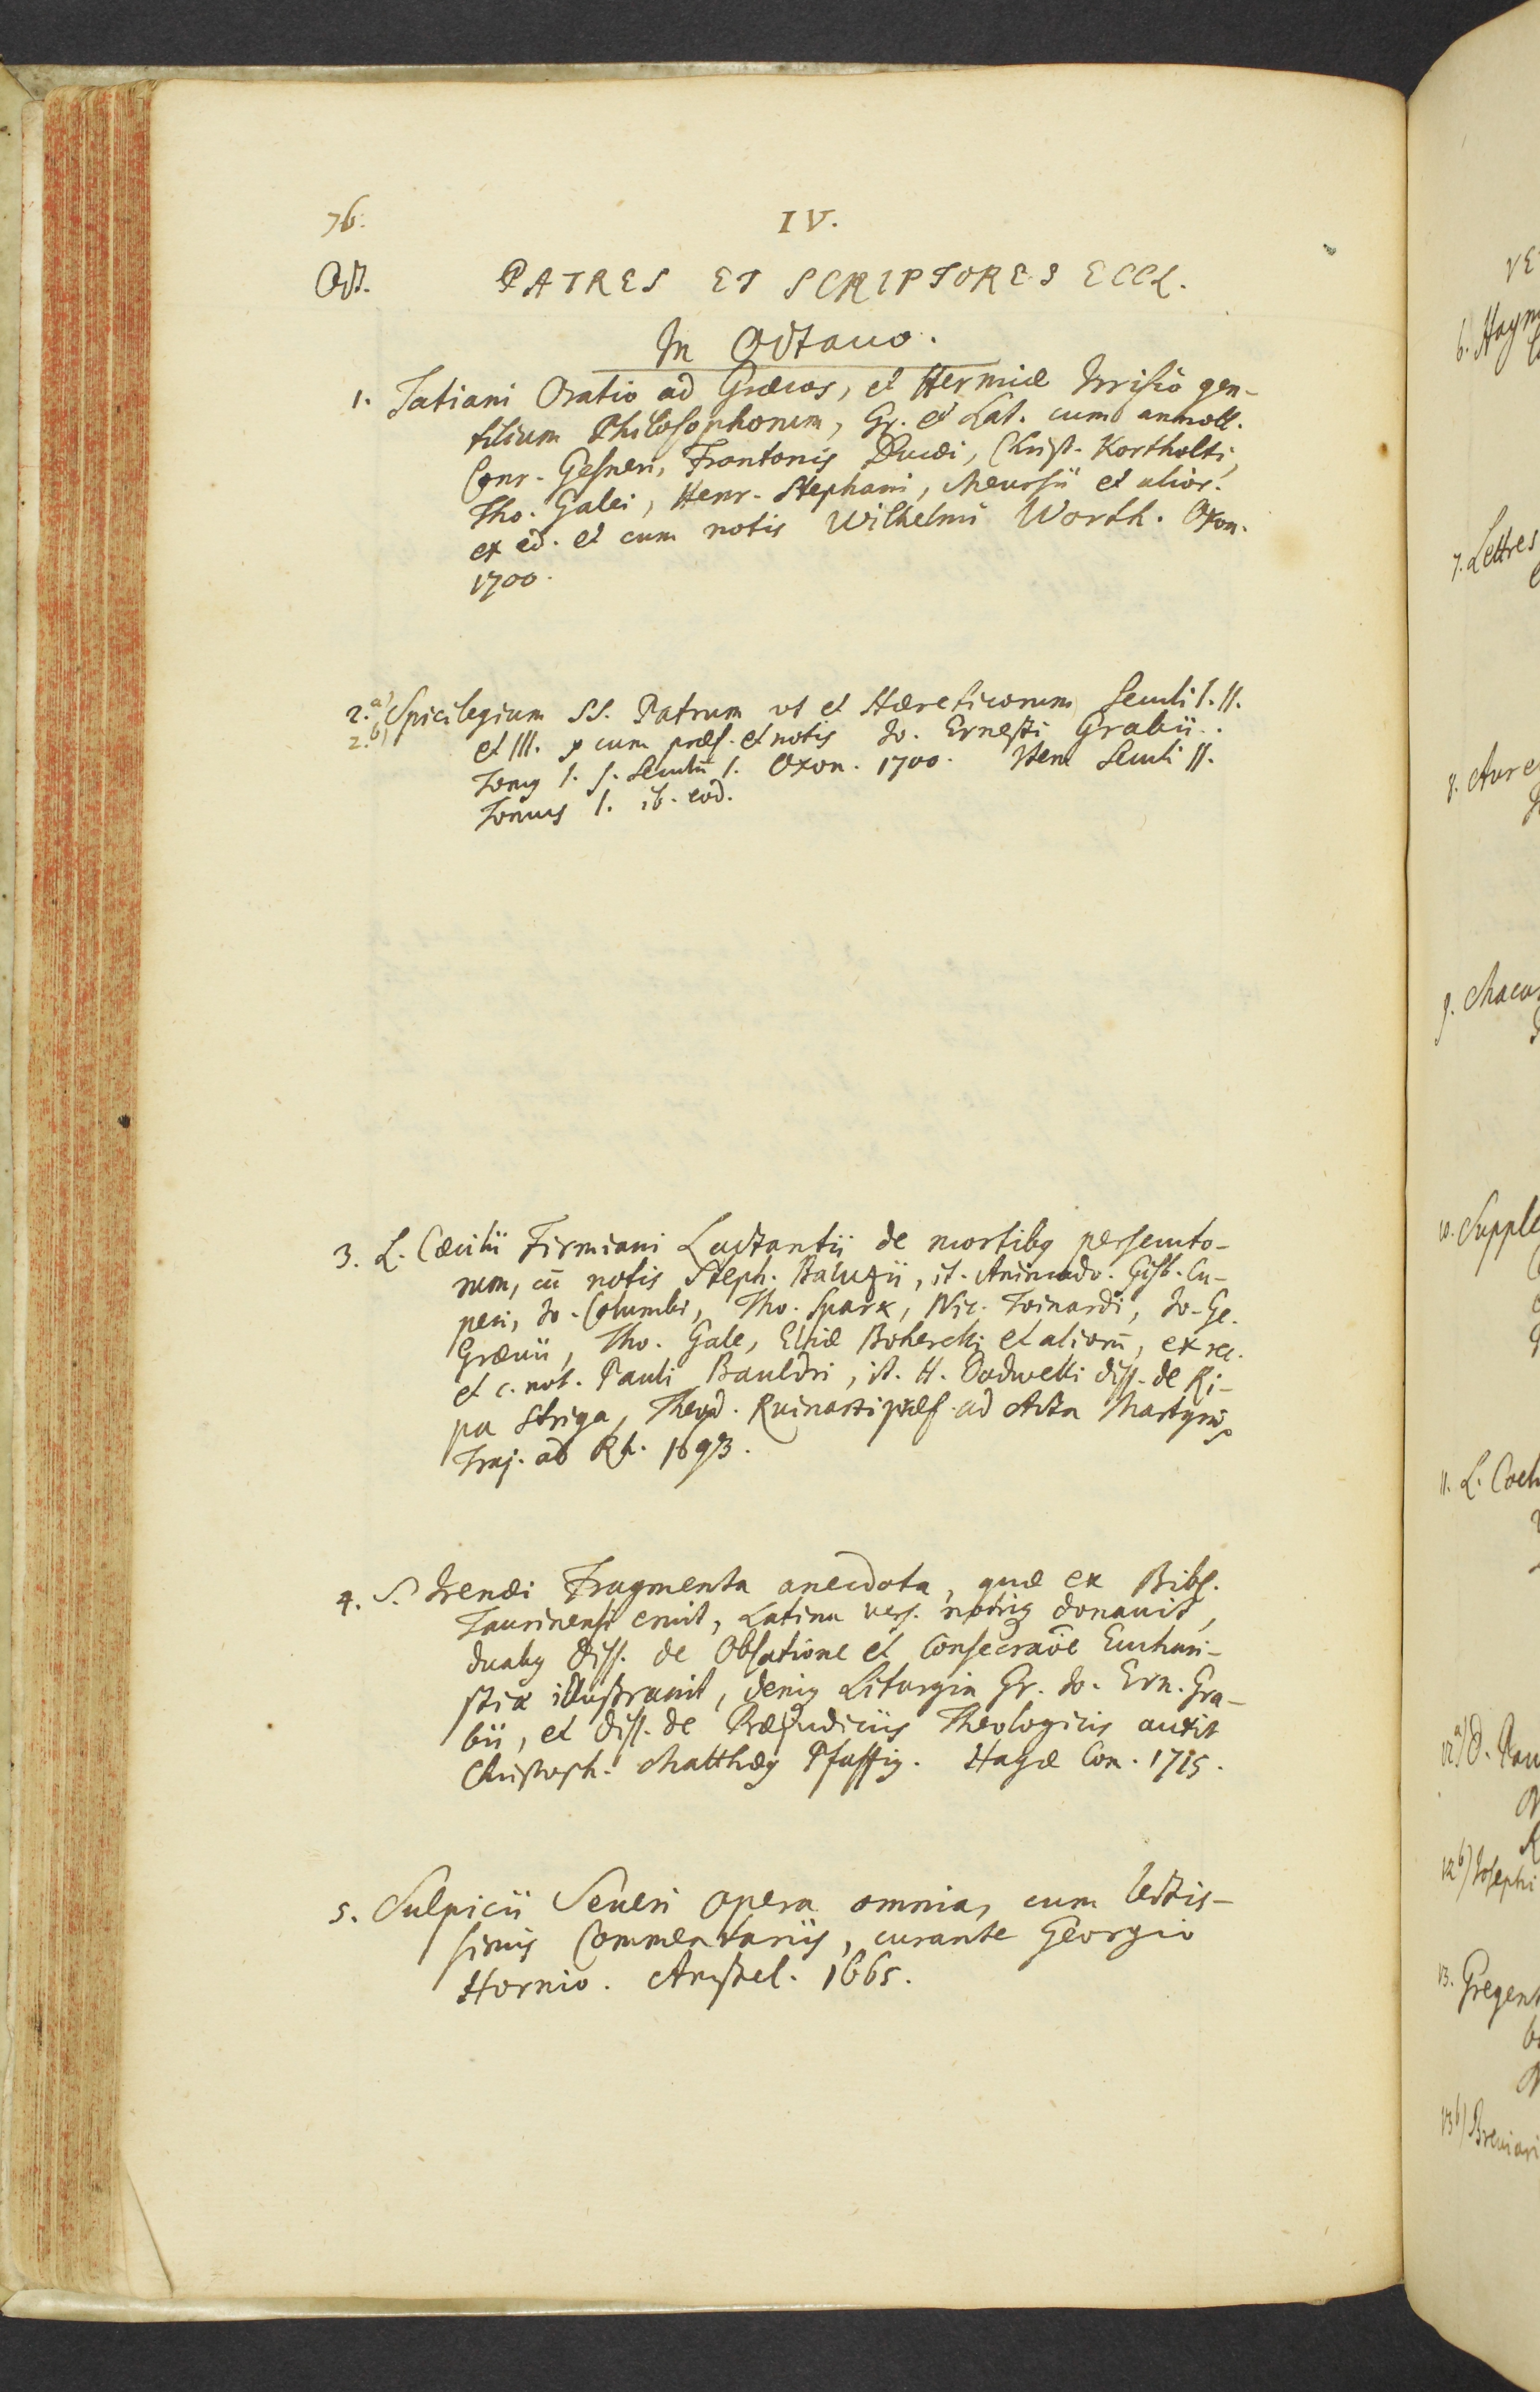 76.
IV.
Oct.
PATRES ET SCRIPTORES ECCL.
In Octauo.
1. Tatiani Oratio ad Græcos, et Hermiæ Irrisio gen-
tilium Philosophorum, Gr. et Lat. cum annott.
Conr. Gesneri, Frontonis Ducæi, Christ. Kortholti,
Tho. Galei, Henr. Stephani, Meursii et alior.
ex ed. et cum notis Wilhelmi Worth. Oxon.
1700.
2.a) Spicilegium SS. Patrum vt et Hæreticorum Seculi I. II.
2.b) et III. cum præf. et notis Jo. Ernesti Grabii.
Tomq I. s. Seculū I. Oxon. 1700. Item Seculi II.
Tomus I. ib. eod.
3. L. Cæcilii Firmiani Lactantii de mortibq persecuto-
rum, cū notis Steph. Baluzii, it. Animadv. Gisb. Cu-
peri, Jo. Columbi, Tho. Spark, Nic. Toinardi, Jo. Ge.
Græuii, Tho. Gale, Eliæ Boherelli et aliorū, ex rec.
et c. not. Pauli Bauldri, it. H. Dodwelli diss. de Ri-
pa Striga, Theod. Ruinarti præf. ad Acta Martyrū
Traj. ad Rh. 1693.
4. S. Irenæi Fragmenta anecdota, quæ ex Bibl.
Taurinensi eruit, Latina vers. notisq donauit,
duabq diss. de Oblatione et Consecraōe Euchari-
stiæ illustrauit, deniq Liturgia Gr. Jo. Ern. Gra-
bii, et diss. de Præjudiciis Theologicis auxit
Christoph. Matthæq Pfaffiq. Hagæ Com. 1715.
5. Sulpicii Seueri opera omnia, cum lectis-
simis Commentariis, curante Georgio
Hornio. Amstel. 1665.
VE
6. Haym
7. Lettres
8. Aure
9. Maca
10. Supple
11. L. Coel
12a) D. Pau
12b) Josephi
13. Gregent
13b) Breuiari